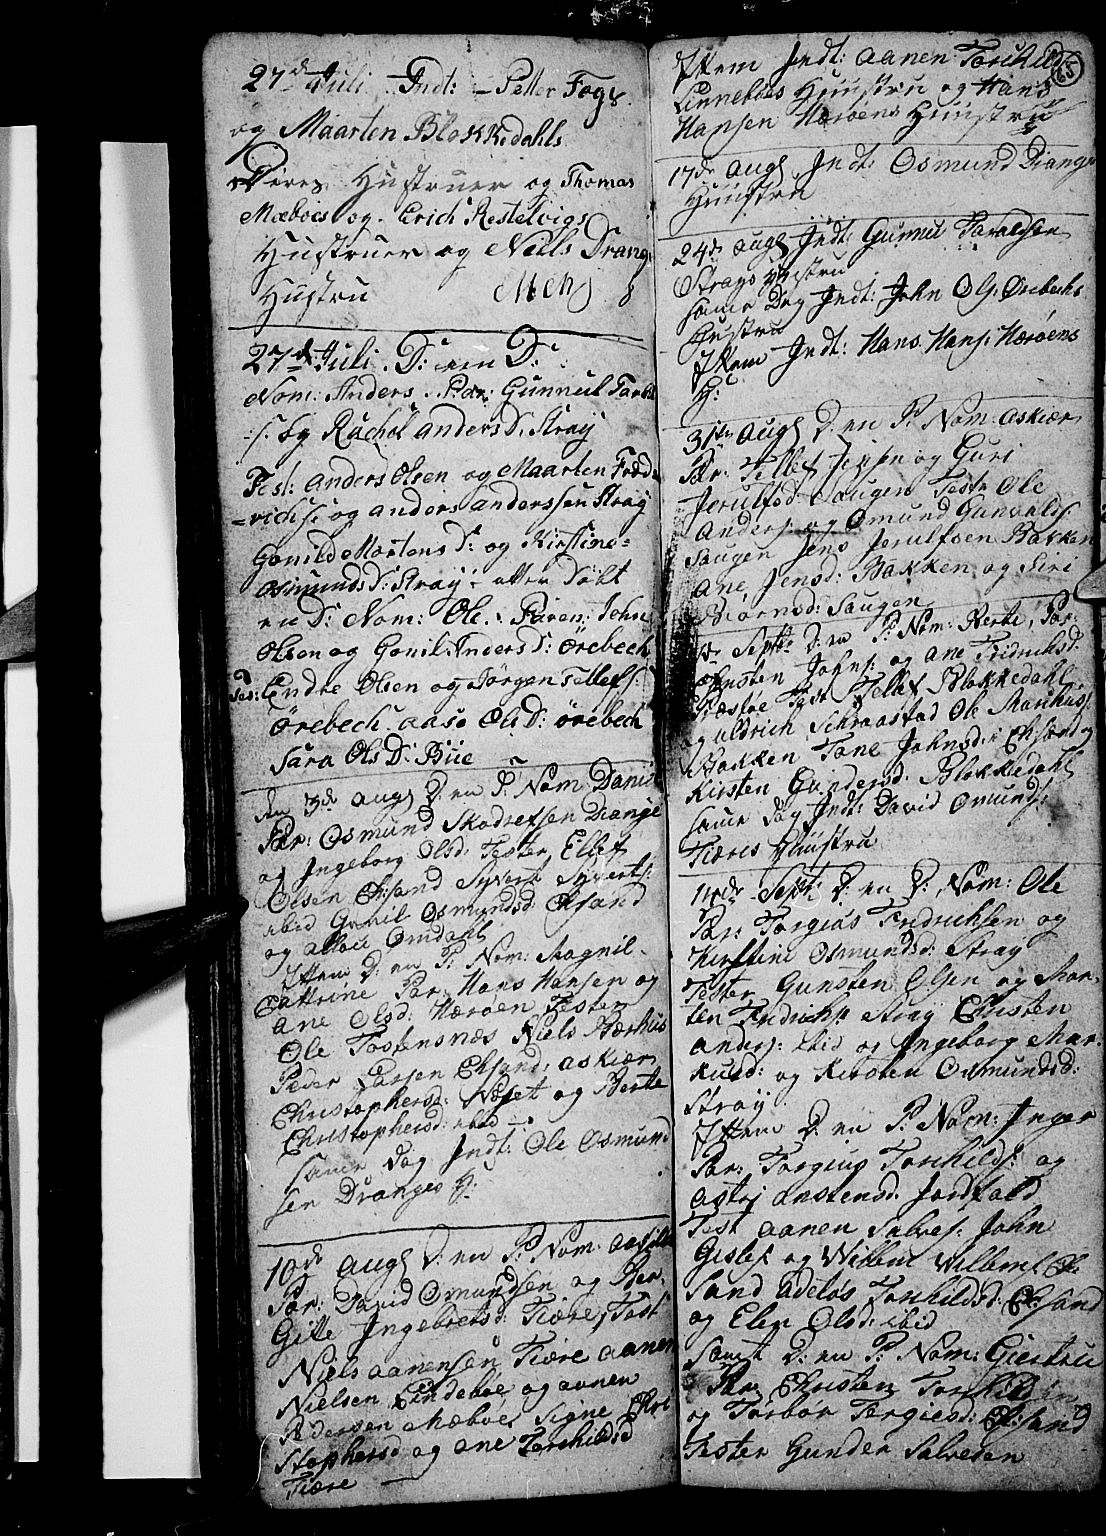 27de Juli. Indt: Petter Fogs
og Maarten Blokkedahls
Deres Hustruer og Thomas
Mæboes og. Erich Restelvigs
Hustruer og Niels Drangs
Hustru
27de Juli. D: een D:
Nom: Anders. Par: Gunneul Tarald
:s. og Rachel anders D. Straÿ
Test: anders Olsen og Maarten Fred
=richs: og anders anderssen Straÿ
Gonild Mortens D: og Kirstine=
Osmunds D: Straÿ - atter Døbt
en D: Nom: Ole. Paren: John
Olsen og Gonil Anders D: örebech
Tes: Endre Olsen og Jörgen Tellefs:
Örebech aase Ols D: örebech
Sara Ols D: Biie
den 3de augs D: en P: Nom Daniel
Par: Osmund Skadvefsen Drange
og Ingeborg Olsd: Tester Ellef
Olsen Chsand Syvert Syverts:
ibid Gunil Osmundsd Chsand
og Omdahl
Ittem D: en P: Nom: Magnil
Cattrine Par: Hans Hansen og
ane Olsd: Herøen Tester
Ole Tostensnæs Niels Aarhus
Peder Larsen Chsand, askiær
Christophersd: Weset og Berte
Christophersd: ibid
samme dag Indt: Ole Osmund
sen Dranges H:
10de augs D: en P: Nom: aasille
Par: David Osmundsen og Ber-
gitte Ingebretsd: Tiære, Test
Niels aanensen Tiære aanen
Nielsen Lindeboe og aanen
Pedersen Mæboe Signe Chri
stophersd og ane Torchildsd
Tiære
85
Ittem Indt: aanen Torchilds
Linneboes Huustru og Hans
Hansen Herøens Huustru
17de augs Indt: Osmund Drange
Huustru
24de augs Indt: Gunnu Taraldsen
Strays Hustru
samme Dag Indt: John Ols: Örebechs
Hustru
Ittem Indt: Hans Hans: Herøens
H:
31te augs D: en P: Nom: askiær
Par: Tellef Jensen og Guri
Jerulfsd: Saugen Test: Ole
Anders: og Osmund Gunvalds
Saugen Jens Jerulfsen Bakken
Ane Jensd: Bakken og Siri
Biørnsd: Saugen
Septr D: en P: Nom: Berte, Par:
Ansten Johns: og Ane Fridrichsd:
Test Tellef Blokkedahl
og uldrich Schraastad Ole Marchuss:
Bakken Tone Johnsd: Chsand og
Kirsten Gundersd: Blokkedahl
samme dag Indt: David Osmunds:
Tiæres Huustru
14de Septr D: en D: Nom: Ole
Par: Torgius Fridrichsen og
Kirstine Osmundsd: Straÿ
Tester Gunsten Olsen og Mor-
ten Fridrichs: Straÿ Christen
anders: ibid og Ingeborg Mar-
kusd: og Kirsten Osmundsd:
Straÿ
Ittem D: en P: Nom: Inger
Par: Torgius Torchilds: og
astri anstensd: Jordfald
Test aanen Salves: John
Gislef: og Willem Willems: Ch
Sand adeløs Torchildsd: Chsand
og Elen Olsd: ibid
Samt D: en P: Nom: Giertru
Par: Christen Torchilds
og Torbor Tergiesd: Ch:sand
Tester Gunder Salvesen